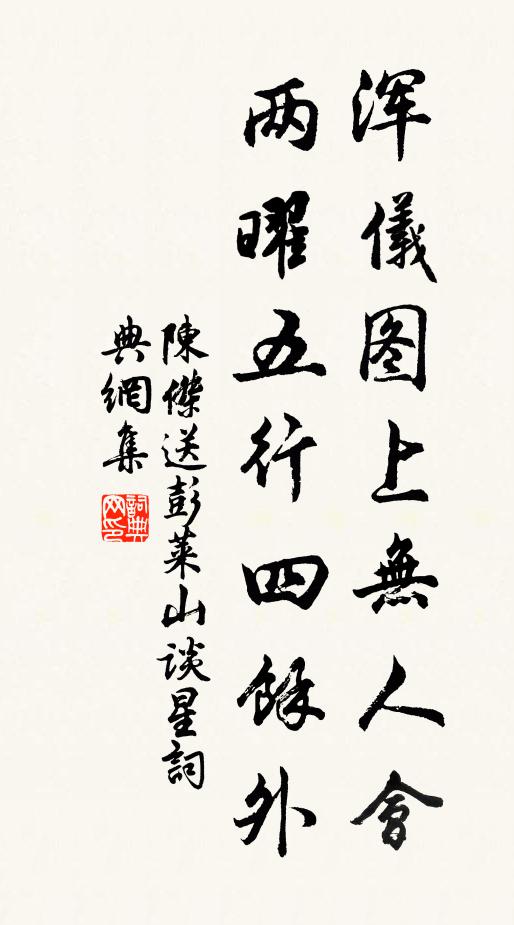 浑儀图上無人會
两曜五行四餘外
陳傑送彭萊山談星詞
典網集
詞典
网印